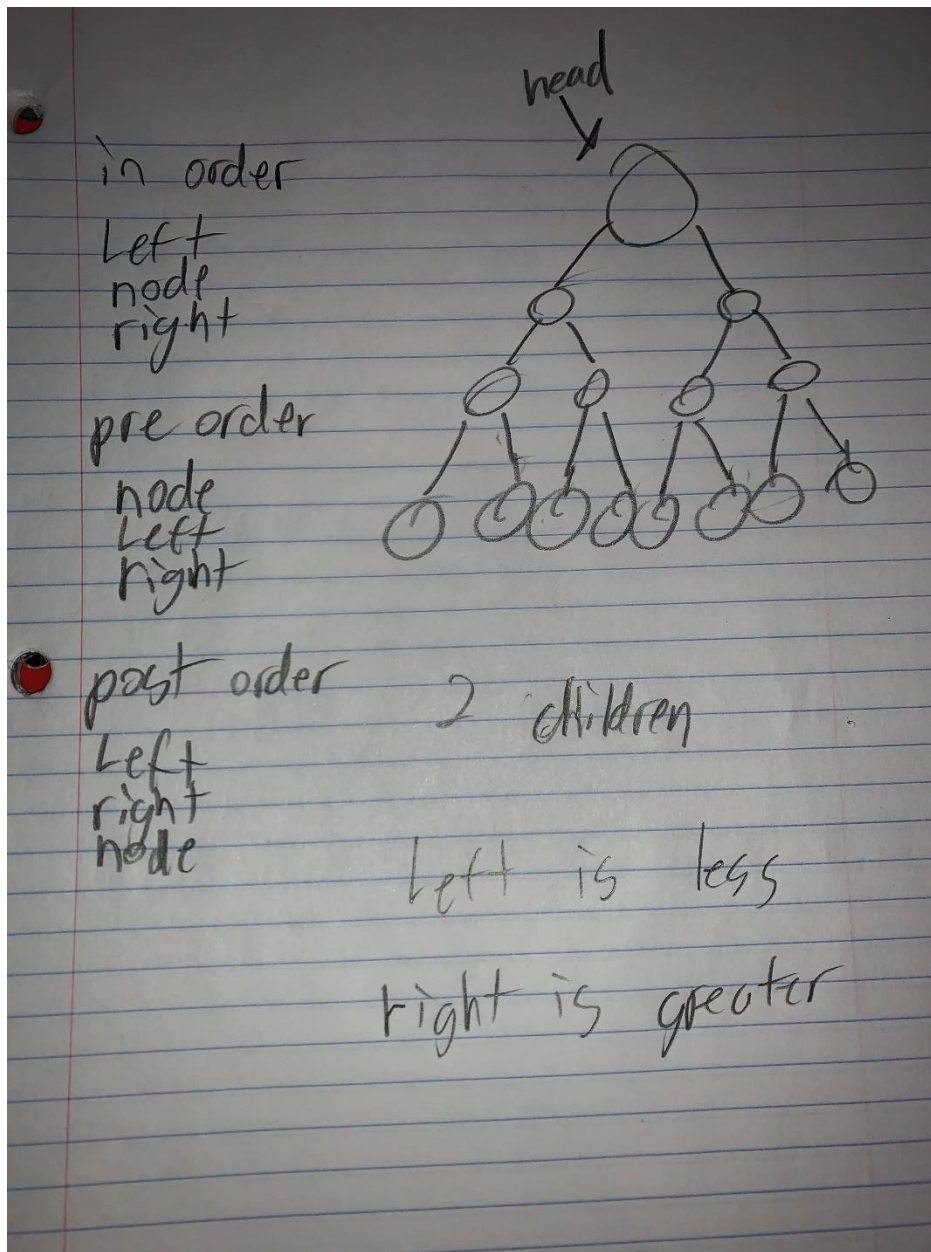 head
in order
Left
node
right
pre order
node
Left
right
post order
Left
right
node
2 children
Left is less
right is greater